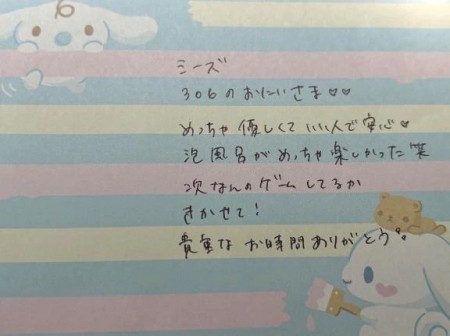 シーズ
306のおにいさま♡♡
めっちゃ優しくていい人で安心♡
泡風呂がめっちゃ楽しかった笑
次なんのゲームしてるか
きかせて!
貴重なお時間ありがとう。